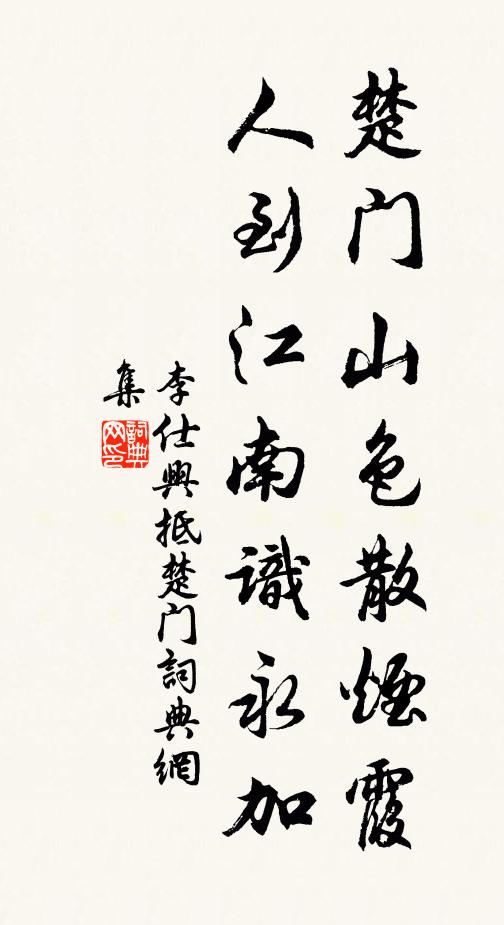 楚门山色散煙霞
人到江南識永加
李仕興抵楚门詞典網
集
詞典网印